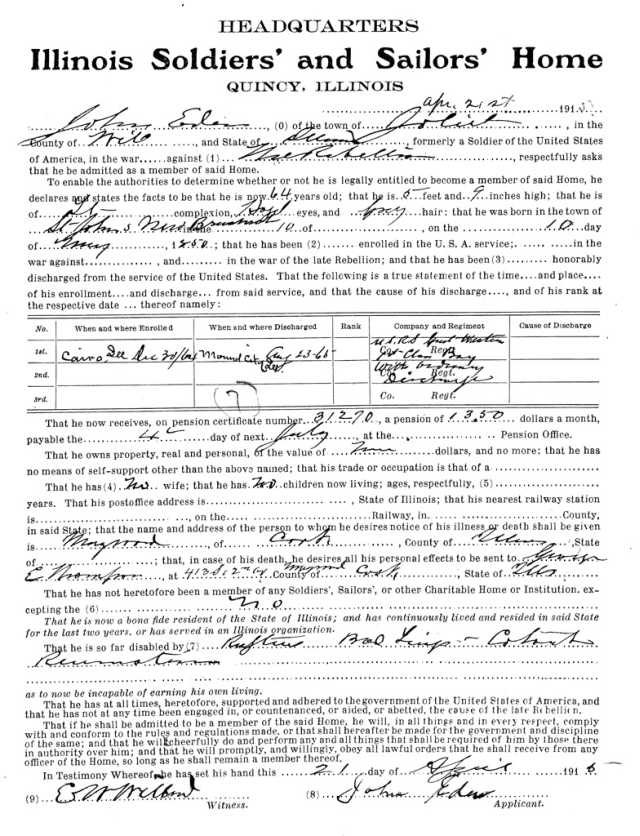 HEADQUARTERS
Illinois Soldiers' and Sailors' Home
QUINCY, ILLINOIS
Apr. 21st 191
John Eden, (0) of the town of Joliet, in the
County of Will, and State of Illinois, formerly a Soldier of the United States
of America, in the war against (1) The Rebellion, respectfully asks
that he be admitted as a member of said Home.
To enable the authorities to determine whether or not he is legally entitled to become a member of said Home, he
declares and states the facts to be that he is now 64 years old; that he is 5 feet and 9 inches high; that he is
of complexion, eyes, and Grey hair: that he was born in the town of
St. Johns New Brunswick, on the 10 day
of, 1850; that he has been (2) enrolled in the U. S. A. service; in the
war against, and in the war of the late Rebellion; and that he has been (3) honorably
discharged from the service of the United States. That the following is a true statement of the time and place
of his enrollment and discharge from said service, and that the cause of his discharge, and of his rank at
the respective date thereof namely:
No. When and where Enrolled When and where Discharged Rank Company and Regiment Cause of Discharge
1st. Cairo Ills Dec 30/64 Mound City Aug 23-65 Co. Regt.
2nd. Co. Regt.
Discharge
3rd. Co. Regt.
7
That he now receives, on pension certificate number 31270, a pension of 13.50 dollars a month,
payable the 4 day of next July, at the Pension Office.
That he owns property, real and personal, of the value of dollars, and no more: that he has
no means of self-support other than the above named; that his trade or occupation is that of a
That he has (4) No wife; that he has No children now living; ages, respectively, (5)
years. That his postoffice address is, State of Illinois; that his nearest railway station
is, on the Railway, in County,
in said State; that the name and address of the person to whom he desires notice of his illness or death shall be given
is Maywood, of Cook, County of Ills, State
of; that, in case of his death, he desires all his personal effects to be sent to
E Thompson, at County of Cook, State of Ills
That he has not heretofore been a member of any Soldiers', Sailors', or other Charitable Home or Institution, ex-
cepting the (6) No
That he is now a bona fide resident of the State of Illinois; and has continuously lived and resided in said State
for the last two years, or has served in an Illinois organization.
That he is so far disabled by (7) Rupture Bad
Rheumatism
as to now be incapable of earning his own living.
That he has at all times, heretofore, supported and adhered to the government of the United States of America, and
that he has not at any time been engaged in, or countenanced, or aided, or abetted, the cause of the late Rebellion.
That if he shall be admitted to be a member of the said Home, he will, in all things and in every respect, comply
with and conform to the rules and regulations made, or that shall hereafter be made for the government and discipline
of the same; and that he will cheerfully do and perform any and all things that shall be required of him by those there
in authority over him; and that he will promptly, and willingly, obey all lawful orders that he shall receive from any
officer of the Home, so long as he shall remain a member thereof.
In Testimony Whereof, he has set his hand this 21 day of April 1915
(9) E. W. Willard (8) John Eden
Witness. Applicant.